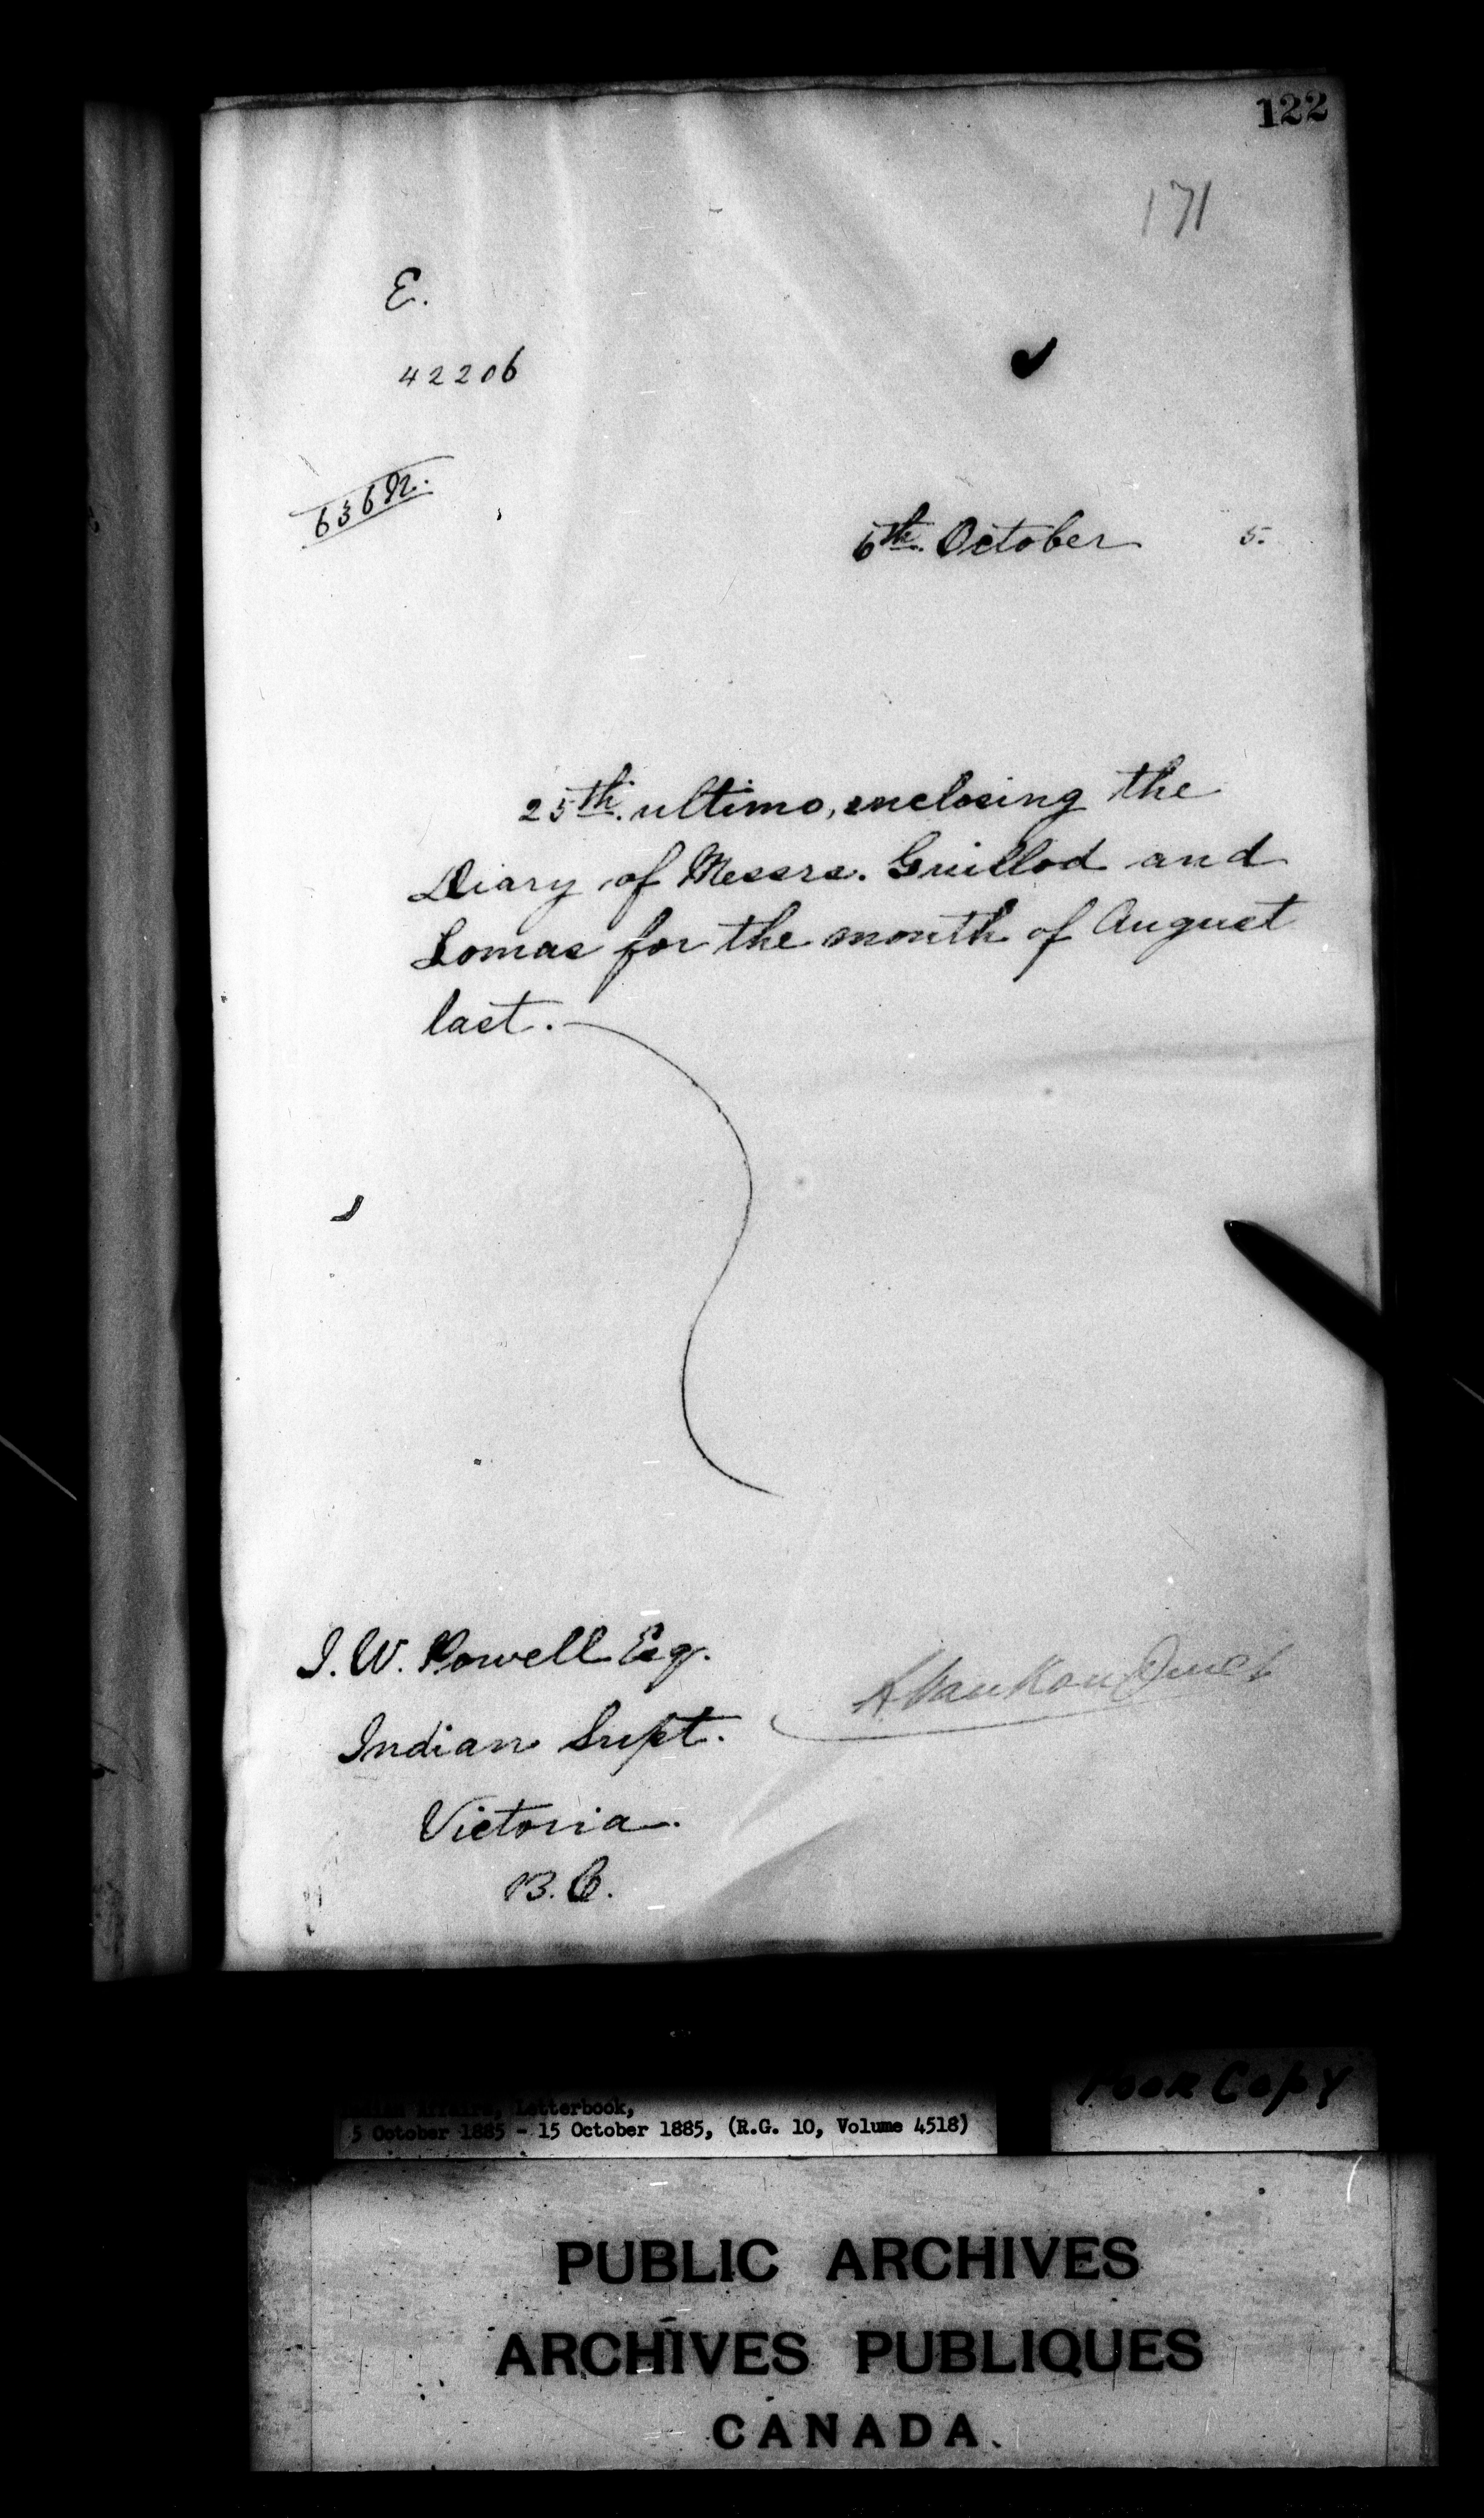 122
171
E.
42206
6th. October 5.
25th. ultimo, enclosing the
Diary of Messrs. Guillod and
Lomas for the month of August
last.
I. W. Powell Esq.
L. VanKoughnet
Indian Supt.
Victoria.
B.C.
Poor Copy
Indian Affairs, Letterbook,
5 October 1885 - 15 October 1885, (R.G. 10, Volume 4518)
PUBLIC ARCHIVES
ARCHIVES PUBLIQUES
CANADA